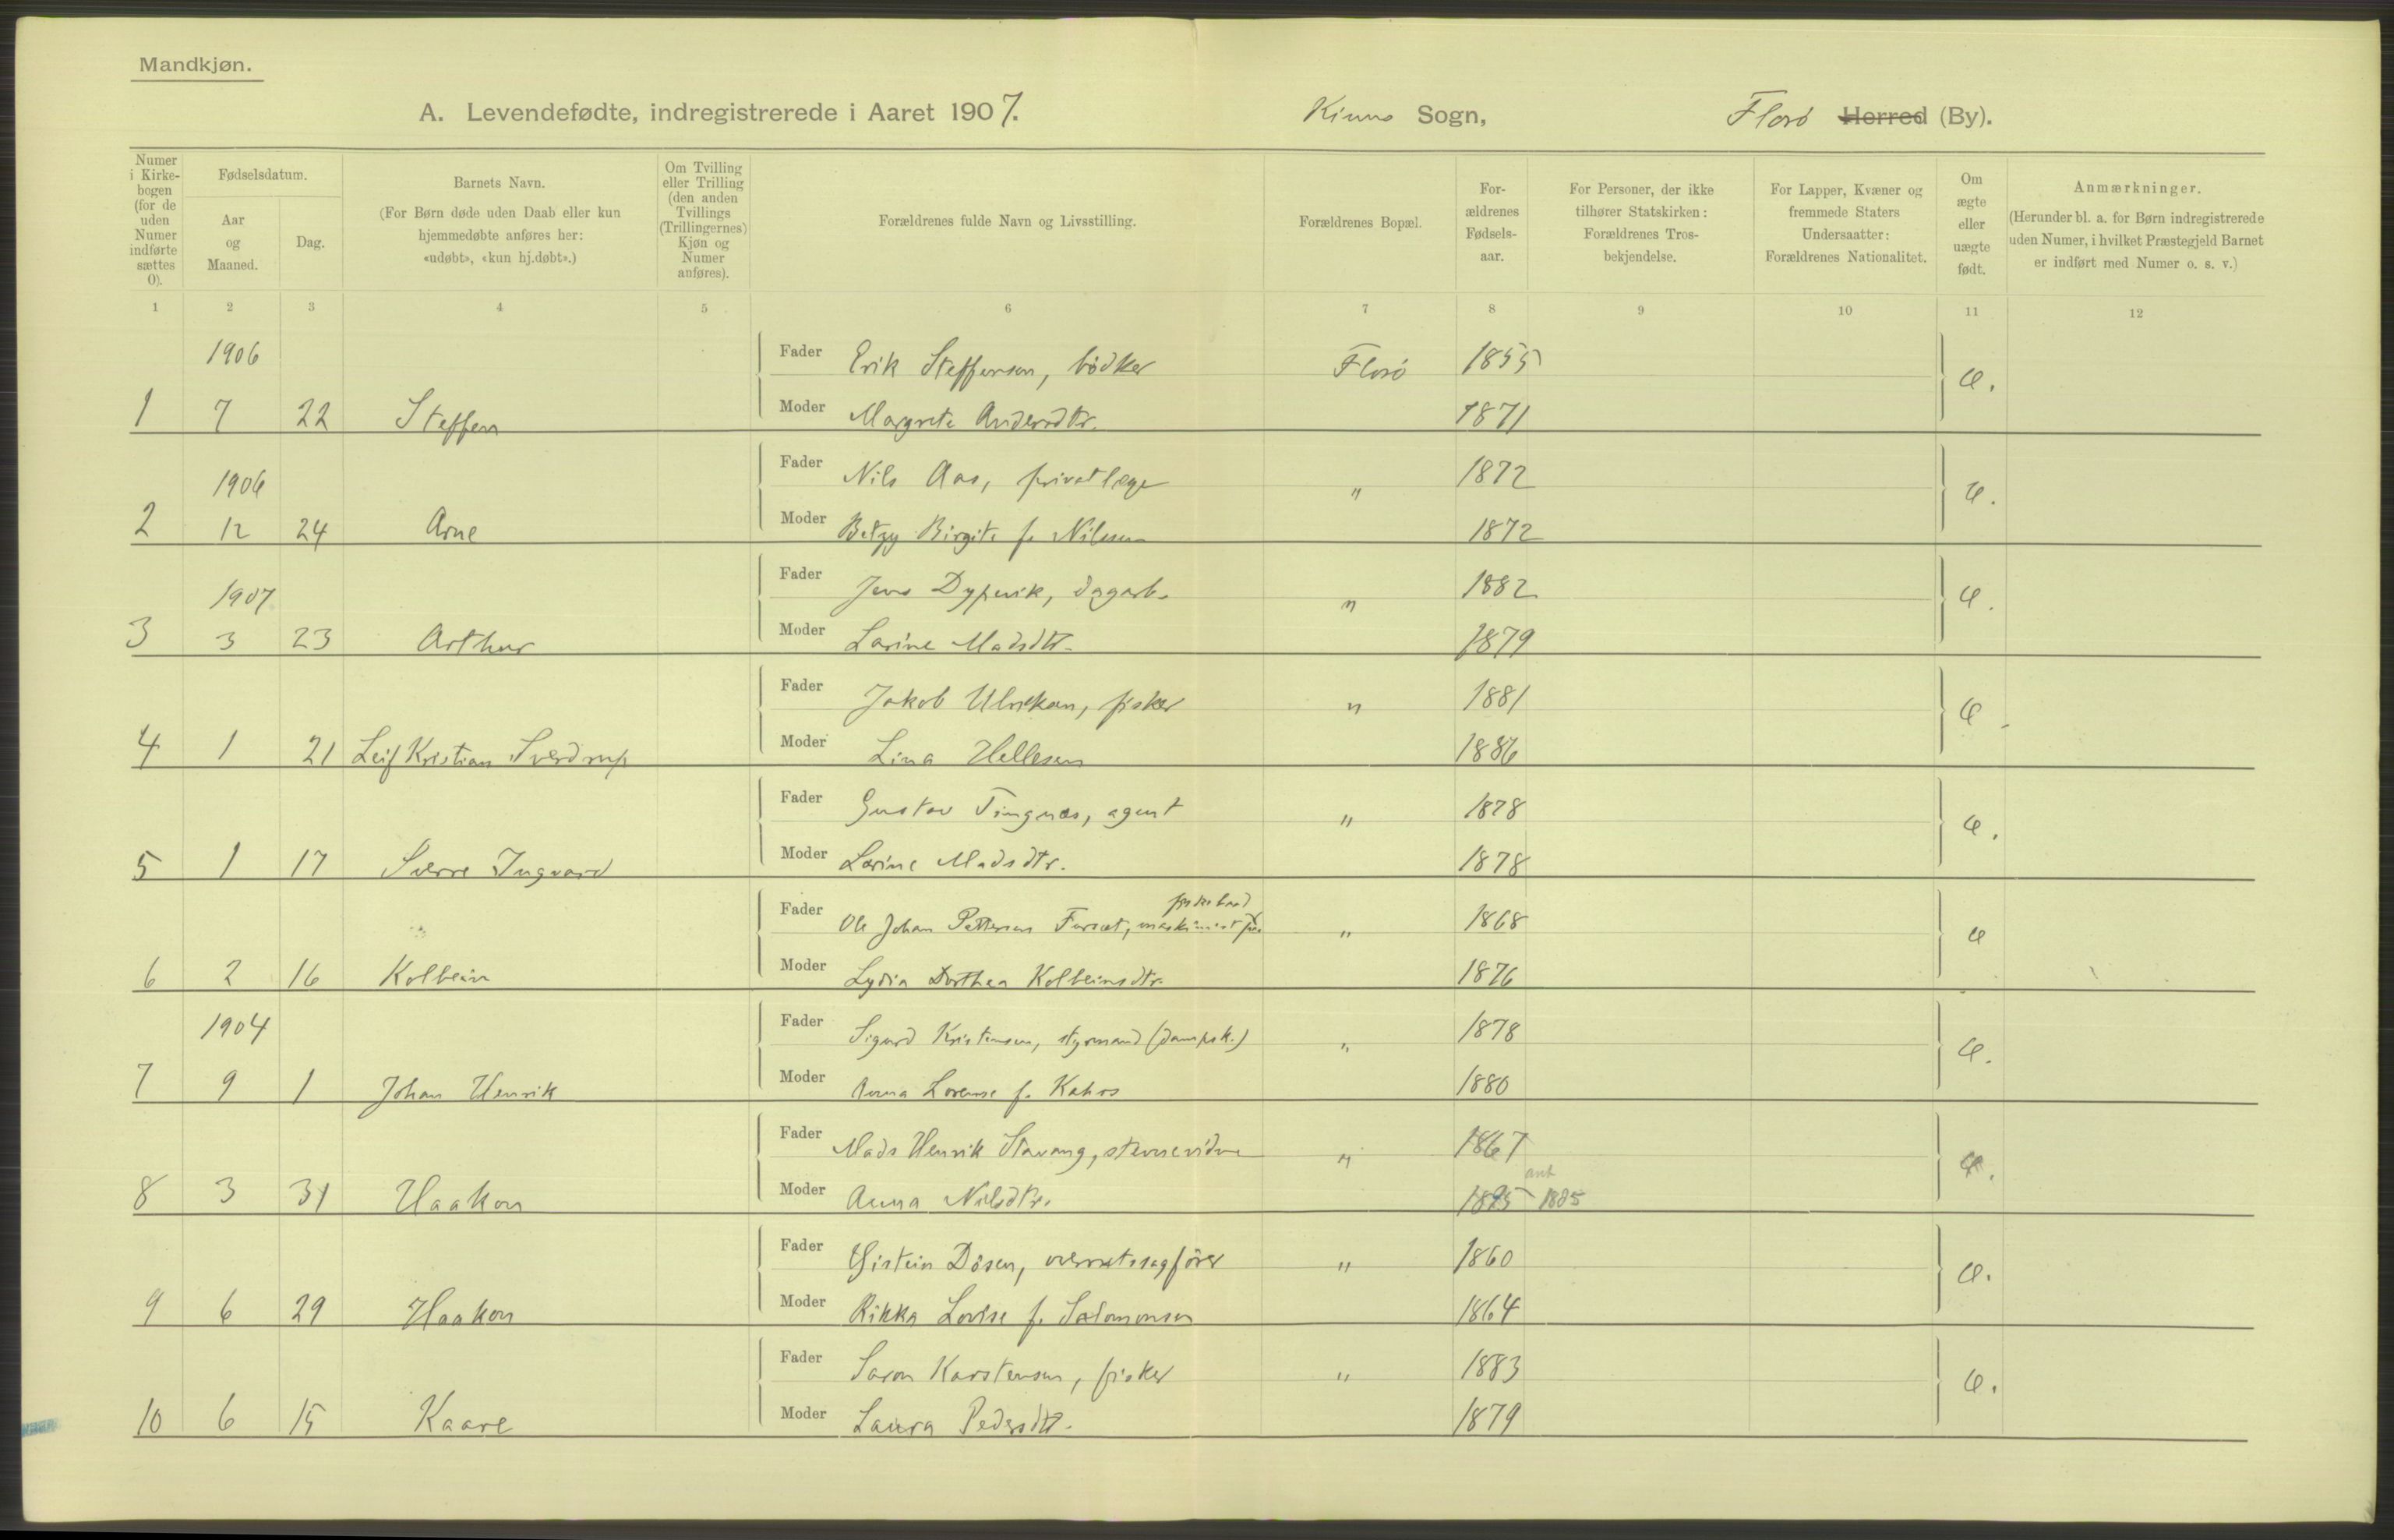 Mandkjøn.
A. Levendefødte, indregistrerede i Aaret 1907. Kinns Sogn, Florö Herred (By).
Numer i Kirkebogen (for de uden Numer indførte sættes 0).
Fødselsdatum.
Aar og Maaned.
Dag.
Barnets Navn.
(For Børn døde uden Daab eller kun hjemmedøbte anføres her: «udøbt», «kun hj.døbt».)
Om Tvilling eller Trilling (den anden Tvillings (Trillingernes) Kjøn og Numer anføres).
Forældrenes fulde Navn og Livsstilling.
Forældrenes Bopæl.
Forældrenes Fødselsaar.
For Personer, der ikke tilhører Statskirken: Forældrenes Trosbekjendelse.
For Lapper, Kvæner og fremmede Staters Undersaatter: Forældrenes Nationalitet.
Om ægte eller uægte født.
Anmærkninger.
(Herunder bl. a. for Børn indregistrerede uden Numer, i hvilket Præstegjeld Barnet er indført med Numer o. s. v.)
1 2 3 4 5 6 7 8 9 10 11 12
1906 Fader Erik Steffensen, bödker Florö 1855 æ.
1 7 22 Steffen Moder Margrete Andersdtr. 1871
1906 Fader Nils Aas, privatlæge " 1872 æ.
2 12 24 Arne Moder Betzy Birgite f. Nilssen 1872
1907 Fader Jens Dypevik, dagarb. " 1882 æ.
3 3 23 Arthur Moder Larine Madsdtr. 1879
Fader Jakob Ulriksen, fisker " 1881 æ
4 1 21 Leif Kristian Sverdrup Moder Lina Hellesen 1886
Fader Gustav Tingnæs, agent " 1878 æ.
5 1 17 Sverre Ingvard Moder Larine Madsdtr. 1878
Fader Ole Johan Pettersen Furset, maskinist " 1868 æ
6 2 16 Kolbein Moder Lydia Dorthea Kolbeinsdtr. 1876
1904 Fader Sigurd Kristensen, styrmand (dampsk.) " 1878 æ.
7 9 1 Johan Henrik Moder Anna Lorense f. Kahrs 1880
Fader Mads Henrik Stavang, stevnevidne " 1867 æ.
8 3 31 Haakon Moder Anna Nilsdtr. 1885
Fader Eistein Dösen, overretssagförer " 1860 æ.
9 6 29 Haakon Moder Rikka Lovise f. Salomonsen 1864
Fader Saron Karstensen, fisker " 1883 æ.
10 6 15 Kaare Moder Laura Pedersdtr. 1879